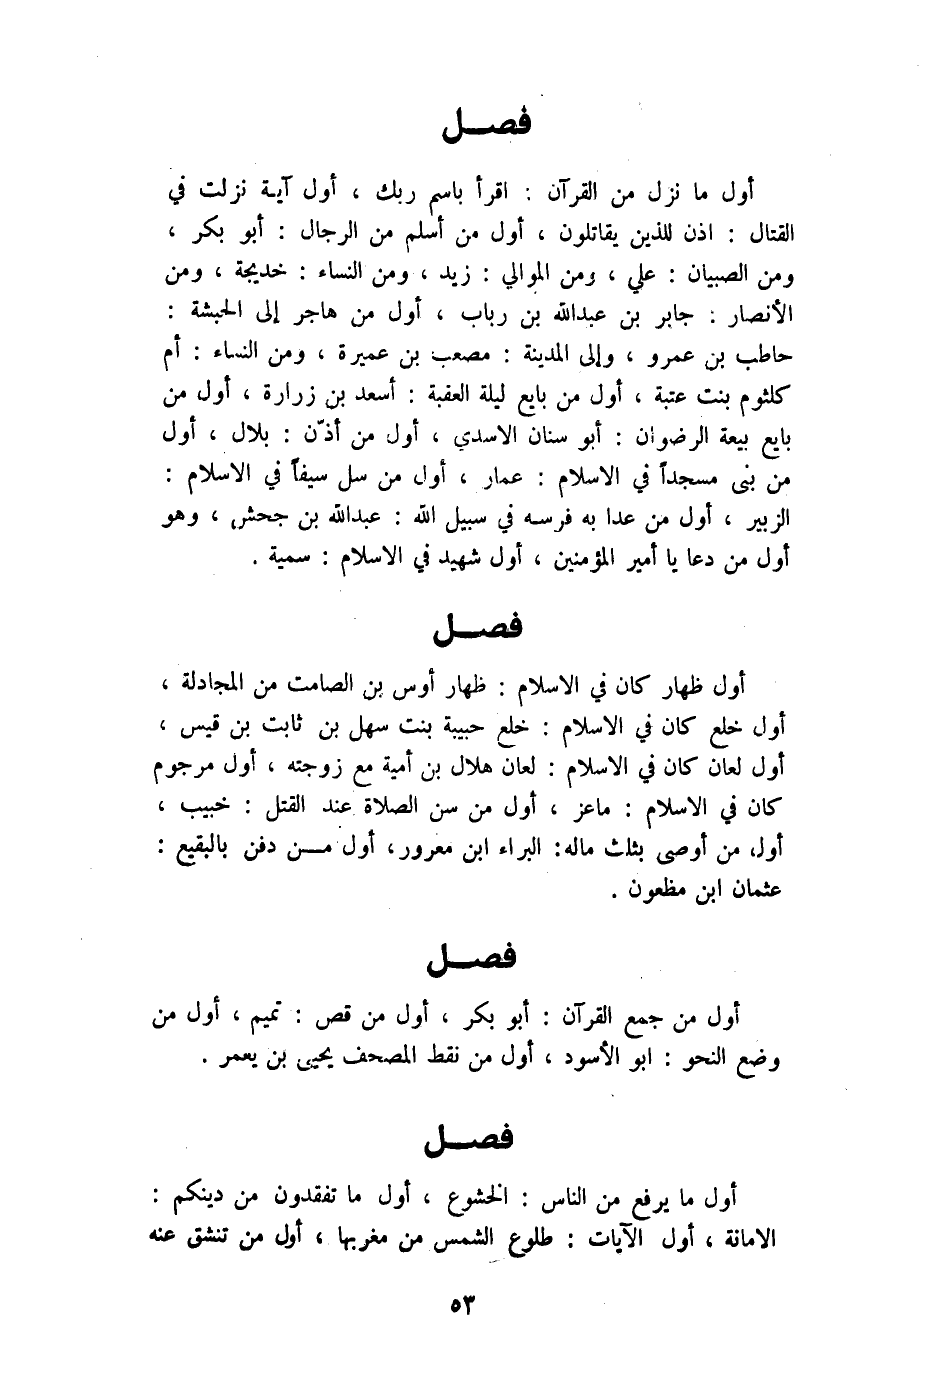 فصــل
أول ما نزل من القرآن : اقرأ باسم ربك ، أول آية نزلت في
القتال : اذن للذين يقاتلون ، أول من أسلم من الرجال : أبو بكر ،
ومن الصبيان : علي ، ومن الموالي : زيد ، ومن النساء : خديجة ، ومن
الأنصار : جابر بن عبدالله بن رباب ، أول من هاجر إلى الحبشة :
حاطب بن عمرو ، وإلى المدينة : مصعب بن عميرة ، ومن النساء : أم
كلثوم بنت عتبة ، أول من بايع ليلة العقبة : أسعد بن زرارة ، أول من
بايع بيعة الرضوان : أبو سنان الاسدي ، أول من أذّن : بلال ، أول
من بنى مسجداً في الاسلام : عمار ، أول من سل سيفاً في الاسلام :
الزبير ، أول من عدا به فرسه في سبيل الله : عبدالله بن جحش ، وهو
أول من دعا يا أمير المؤمنين ، أول شهيد في الاسلام : سمية .
فصــل
أول ظهار كان في الاسلام : ظهار أوس بن الصامت من المجادلة ،
أول خلع كان في الاسلام : خلع حبيبة بنت سهل بن ثابت بن قيس ،
أول لعان كان في الاسلام : لعان هلال بن أمية مع زوجته ، أول مرجوم
كان في الاسلام : ماعز ، أول من سن الصلاة عند القتل : خبيب ،
أول من أوصى بثلث ماله: البراء ابن معرور، أول مــن دفن بالبقيع :
عثمان ابن مظعون .
فصــل
أول من جمع القرآن : أبو بكر ، أول من قص : تميم ، أول من
وضع النحو : ابو الأسود ، أول من نقط المصحف يحيى بن يعمر .
فصــل
أول ما يرفع من الناس : الخشوع ، أول ما تفقدون من دينكم :
الامانة ، أول الآيات : طلوع الشمس من مغربها ، أول من تنشق عنه
٥٣